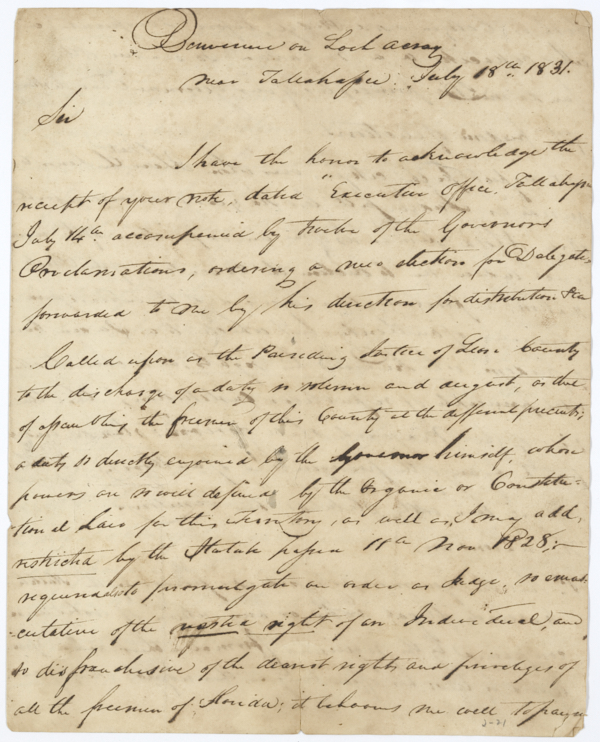 Denvenue on Loch Acray
near Tallahassee. July 18th. 1831.
Sir
I have the honor to acknowledge the
receipt of your note, dated "Executive Office, Tallahassee
July 14th. accompanied by twelve of the Governors
Proclamations, ordering a new election for Delegate,
forwarded to me by his direction for distribution &ca
Called upon as the Presiding Justice of Leon County
to the discharge of a duty so solemn and august, as that
of assembling the freemen of this County at the different precincts,
a duty so directly enjoined by the Governor himself, whose
powers are so well defined by the Organic or Constitu-
tional Law for this Territory, as well as, I may add,
restricted by the Statute passed 11th Nov 1828;-
required to promulgate an order as Judge, so
of the vested right of an Individual, and
so disfranchisive of the dearest rights and privileges of
all the freemen of Florida; it behooves me well to pause
2-21